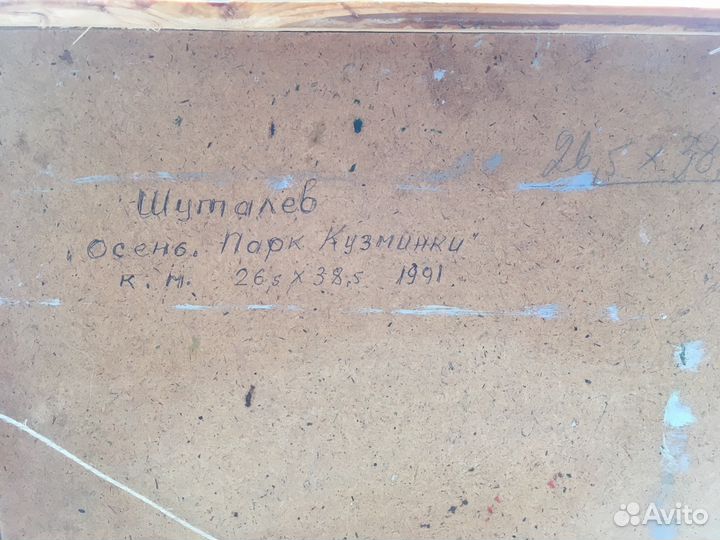 26,5 x 38,
Шуталев
"Осень. Парк Кузминки"
к. м. 26,5 x 38,5 1991
Avito